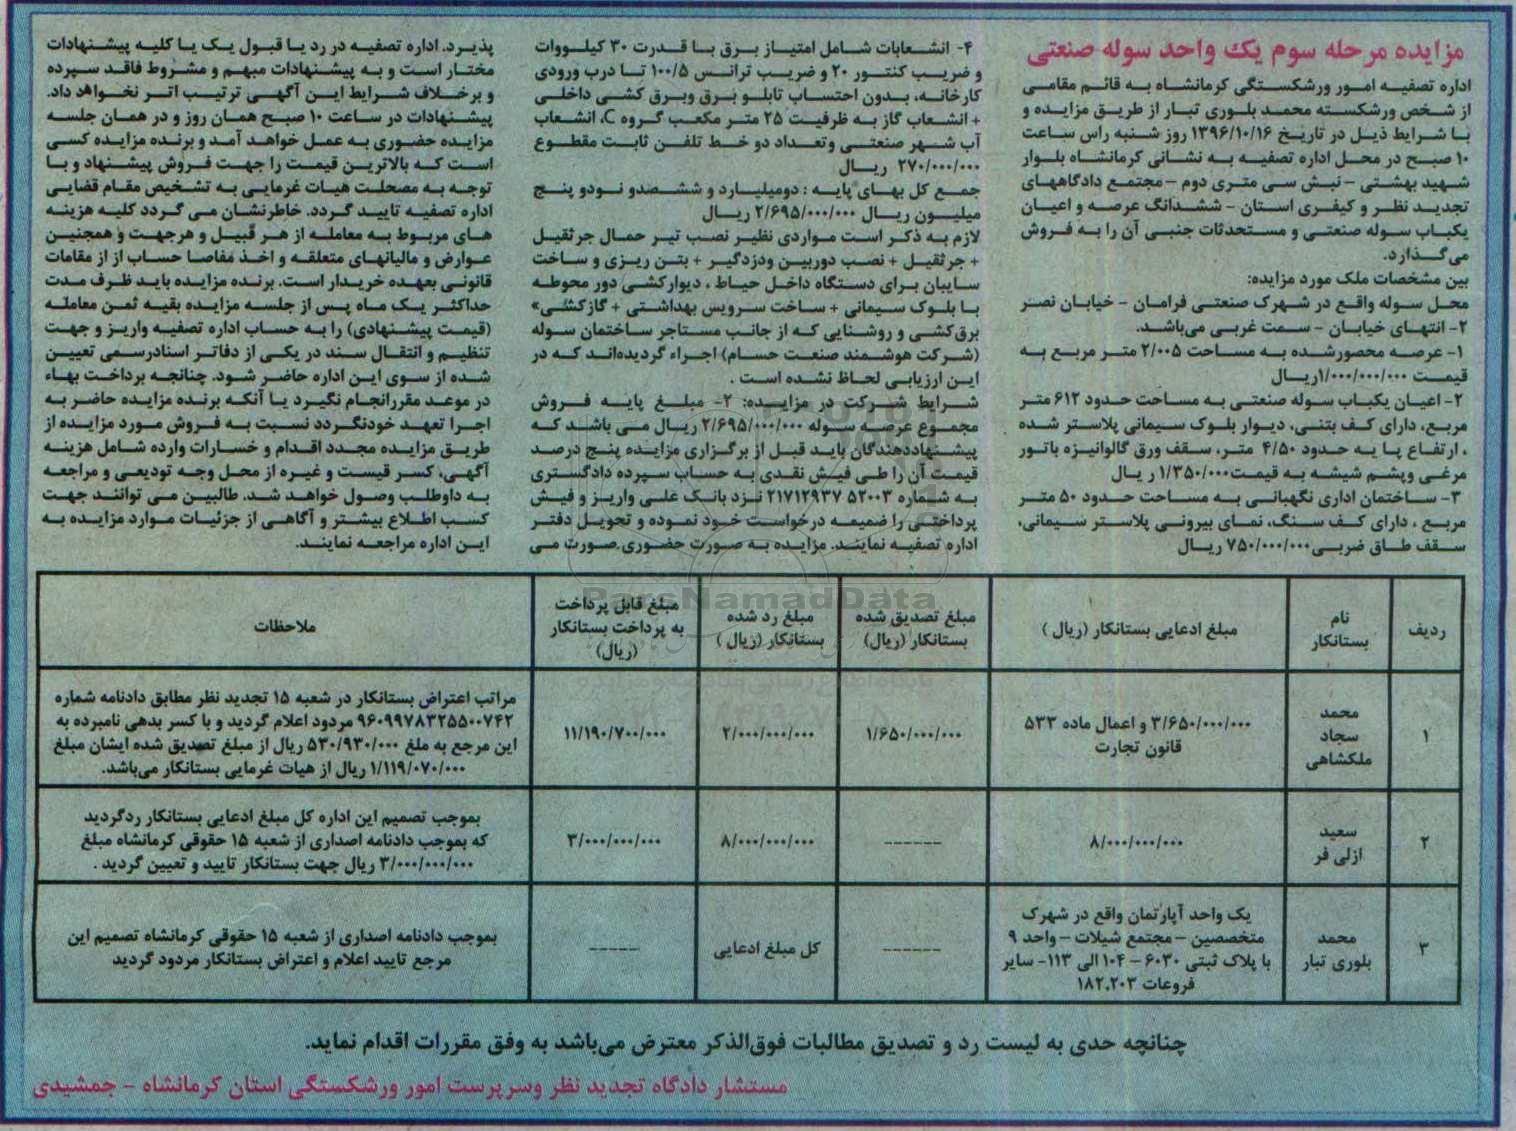 مزایده مرحله سوم یک واحد سوله صنعتی
اداره تصفیه امور ورشکستگی کرمانشاه به قائم مقامی
از شخص ورشکسته محمد بلوری تبار از طریق مزایده و
با شرایط ذیل در تاریخ ۱۳۹۶/۱۰/۱۶ روز شنبه راس ساعت
۱۰ صبح در محل اداره تصفیه به نشانی کرمانشاه بلوار
شهید بهشتی - نبش سی متری دوم - مجتمع دادگاههای
تجدید نظر و کیفری استان - ششدانگ عرصه و اعیان
یکباب سوله صنعتی و مستحدثات جنبی آن را به فروش
می گذارد.
بین مشخصات ملک مورد مزایده:
محل سوله واقع در شهرک صنعتی فرامان - خیابان نصر
۲- انتهای خیابان - سمت غربی می‌باشد.
۱- عرصه محصورشده به مساحت ۲/۰۰۵ متر مربع به
قیمت ۱/۰۰۰/۰۰۰/۰۰۰ریال
۲- اعیان یکباب سوله صنعتی به مساحت حدود ۶۱۲ متر
مربع، دارای کف بتنی، دیوار بلوک سیمانی پلاستر شده
، ارتفاع پا یه حدود ۴/۵۰ متر، سقف ورق گالوانیزه باتور
مرغی وپشم شیشه به قیمت۱/۳۵۰/۰۰۰ ر یال
۳- ساختمان اداری نگهبانی به مساحت حدود ۵۰ متر
مربع ، دارای کف سنگ، نمای بیرونی پلاستر سیمانی،
سقف طاق ضربی۷۵۰/۰۰۰/۰۰۰ ریال
۴- انشعابات شامل امتیاز برق با قدرت ۳۰ کیلووات
و ضریب کنتور ۲۰ و ضریب ترانس ۱۰۰/۵ تا درب ورودی
کارخانه، بدون احتساب تابلو برق وبرق کشی داخلی
+ انشعاب گاز به ظرفیت ۲۵ متر مکعب گروه C، انشعاب
آب شهر صنعتی وتعداد دو خط تلفن ثابت مقطوع
۲۷۰/۰۰۰/۰۰۰ ریال
جمع کل بهای پایه : دومیلیارد و ششصدو نودو پنج
میلیون ریال ۲/۶۹۵/۰۰۰/۰۰۰ ریال
لازم به ذکر است مواردی نظیر نصب تیر حمال جرثقیل
+ جرثقیل + نصب دوربین ودزدگیر + بتن ریزی و ساخت
سایبان برای دستگاه داخل حیاط ، دیوارکشی دور محوطه
با بلوک سیمانی + ساخت سرویس بهداشتی + گازکشی»
برق‌کشی و روشنایی که از جانب مستاجر ساختمان سوله
(شرکت هوشمند صنعت حسام) اجراء گردیده‌اند که در
این ارزیابی لحاظ نشده است .
شرایط شرکت در مزایده: ۲- مبلغ پایه فروش
مجموع عرصه سوله ۲/۶۹۵/۰۰۰/۰۰۰ ریال می باشد که
پیشنهاددهندگان باید قبل از برگزاری مزایده پنج درصد
قیمت آن را طی فیش نقدی به حساب سپرده دادگستری
به شماره ۵۲۰۰۳ ۲۱۷۱۲۹۳۷ نزد بانک علی واریز و فیش
پرداختی را ضمیمه درخواست خود نموده و تحویل دفتر
اداره تصفیه نمایند. مزایده به صورت حضوری صورت می
پذیرد. اداره تصفیه در رد یا قبول یک یا کلیه پیشنهادات
مختار است و به پیشنهادات مبهم و مشروط فاقد سپرده
و برخلاف شرایط این آگهی ترتیب اثر نخواهد داد.
پیشنهادات در ساعت ۱۰ صبح همان روز و در همان جلسه
مزایده حضوری به عمل خواهد آمد و برنده مزایده کسی
است که بالاترین قیمت را جهت فروش پیشنهاد و با
توجه به مصحلت هیات غرمایی به تشخیص مقام قضایی
اداره تصفیه تایید گردد. خاطرنشان می گردد کلیه هزینه
های مربوط به معامله از هر قبیل و هرجهت و همچنین
عوارض و مالیاتهای متعلقه و اخذ مفاصا حساب از از مقامات
قانونی بعهده خریدار است. برنده مزایده باید ظرف مدت
حداکثر یک ماه پس از جلسه مزایده بقیه ثمن معامله
(قیمت پیشنهادی) را به حساب اداره تصفیه واریز و جهت
تنظیم و انتقال سند در یکی از دفاتر اسنادرسمی تعیین
شده از سوی این اداره حاضر شود. چنانچه پرداخت بهاء
در موعد مقررانجام نگیرد یا آنکه برنده مزایده حاضر به
اجرا تعهد خودنگردد نسبت به فروش مورد مزایده از
طریق مزایده مجدد اقدام و خسارات وارده شامل هزینه
آگهی، کسر قیست و غیره از محل وجه تودیعی و مراجعه
به داوطلب وصول خواهد شد. طالبین می توانند جهت
کسب اطلاع بیشتر و آگاهی از جزئیات موارد مزایده به
این اداره مراجعه نمایند.
ParsNamadData
ردیف
نام بستانکار
مبلغ ادعایی بستانکار (ریال )
مبلغ تصدیق شده بستانکار (ریال)
مبلغ رد شده بستانکار (ریال )
مبلغ قابل پرداخت به پرداخت بستانکار (ریال)
ملاحظات
۱
محمد سجاد ملکشاهی
۳/۶۵۰/۰۰۰/۰۰۰ و اعمال ماده ۵۳۳
قانون تجارت
۱/۶۵۰/۰۰۰/۰۰۰
۲/۰۰۰/۰۰۰/۰۰۰
۱۱/۱۹۰/۷۰۰/۰۰۰
مراتب اعتراض بستانکار در شعبه ۱۵ تجدید نظر مطابق دادنامه شماره
۹۶۰۹۹۷۸۳۲۵۵۰۰۷۴۲ مردود اعلام گردید و با کسر بدهی نامبرده به
این مرجع به ملغ ۵۳۰/۹۳۰/۰۰۰ ریال از مبلغ تصدیق شده ایشان مبلغ
۱/۱۱۹/۰۷۰/۰۰۰ ریال از هیات غرمایی بستانکار می‌باشد.
۲
سعید ازلی فر
۸/۰۰۰/۰۰۰/۰۰۰
------
۸/۰۰۰/۰۰۰/۰۰۰
۳/۰۰۰/۰۰۰/۰۰۰
بموجب تصمیم این اداره کل مبلغ ادعایی بستانکار ردگردید
که بموجب دادنامه اصداری از شعبه ۱۵ حقوقی کرمانشاه مبلغ
۳/۰۰۰/۰۰۰/۰۰۰ ریال جهت بستانکار تایید و تعیین گردید .
۳
محمد بلوری تبار
یک واحد آپارتمان واقع در شهرک
متخصصین - مجتمع شیلات - واحد ۹
با پلاک ثبتی ۶۰۳۰ - ۱۰۴ الی ۱۱۳- سایر
فروعات ۱۸۲،۲۰۳
------
کل مبلغ ادعایی
-----
بموجب دادنامه اصداری از شعبه ۱۵ حقوقی کرمانشاه تصمیم این
مرجع تایید اعلام و اعتراض بستانکار مردود گردید
چنانچه حدی به لیست رد و تصدیق مطالبات فوق‌الذکر معترض می‌باشد به وفق مقررات اقدام نماید.
مستشار دادگاه تجدید نظر وسرپرست امور ورشکستگی استان کرمانشاه - جمشیدی